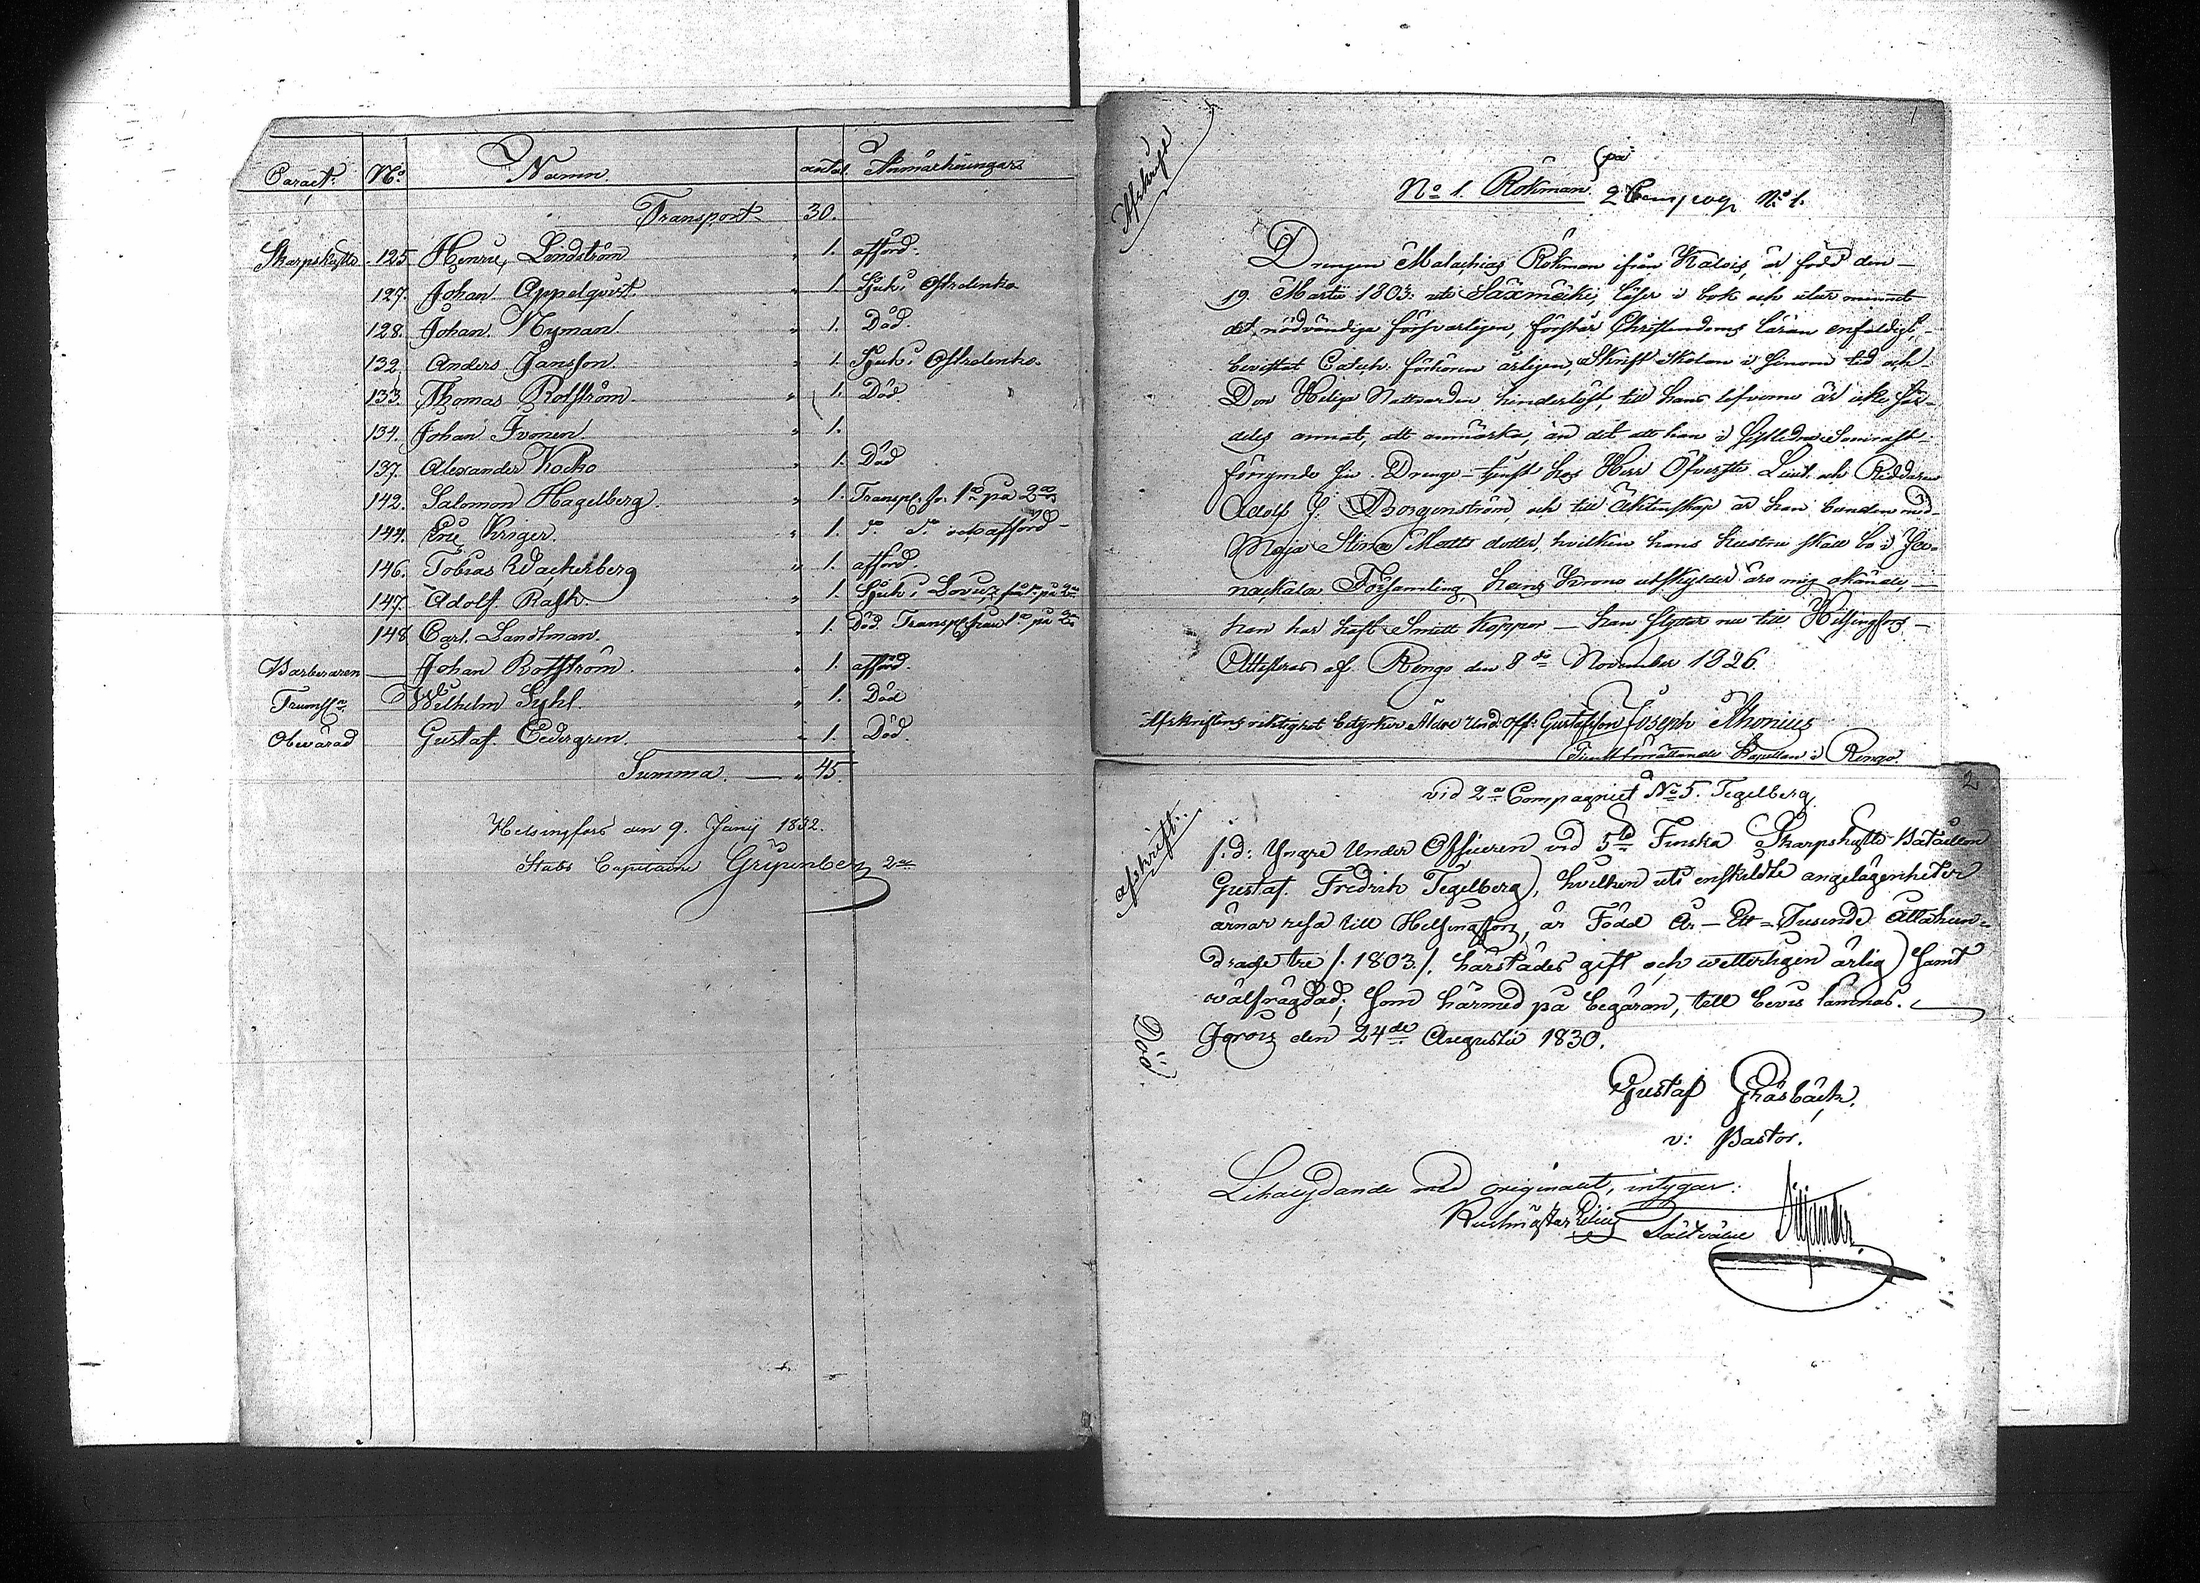 Caract: No Namn. antal Anmärkningar
Transport 30.
Skarpskytte 125 Henric Lindström 1. afförd.
127. Johan Appelqvist 1 Sjuk i Ostrolenka
128. Johan Nyman 1. Död.
132. Anders Jansson 1. Sjuk i Ostrolenka.
133. Thomas Rotström 1. Död
134. Johan Ivonen 1.
137. Alexander Kocko 1. Död
142. Salomon Hagelberg. 1. Transp. fr. 1a på 2a
144. Eric Kriger. 1. Do Do och afförd
146. Tobias Wackerberg 1. afförd.
147. Adolf Rask. 1. Sjuk i Lovicz från 1a på 2a
148. Carl Landtman. 1. Död. Transp. från 1a på 2a
Barberaren Johan Rotström. 1. afförd.
Trumsl. Wilhelm Syhl. 1. Död
Obevärad Gustaf Cedergren. 1. Död.
Summa 45
Helsingfors den 9. Junij 1832.
Stabs Capitaine Gripenberg 2de
1
Afskrift
på
No 1. Rökman 2 Compag. No 1.
Drengen Malachias Rökman ifrån Kalois, är född den
19. Martii 1803. uti Säxmäki, läser i bok och utur minnet
det nödvändiga försvarligen, förstår Christendoms läran enfaldigt,
bevistat Catech: förhören årligen, Skrift Skolan i sinom tid och
Den Heliga Nattvarden hinderlöst, till hans lefverne är icke sär-
deles annat, att anmärka, än det att han i sistledne Sommar
förrymde sin Drenge-tjenst hos Herr Öfverste Lieut. och Riddaren
Adolf J. Borgenström, och till Äktenskap är han bunden med
Maja Stina Matts dotter, hvilken hans hustru skall bo i Ja-
nackala Församling, hans Krono utskylder äro mig okände,
han har haft Smitt Koppor – han flyttar nu till Helsingfors –
Attesteras af Rengo den 8de November 1826.
Afskriftens riktighet betygar Äldre Und: Off: Gustafsson Joseph Thonius
Tjenstförrättande Kapellan i Rengo
2
vid 2a Compagniet No 5. Tegelberg
afskrift:
f.d: Yngre Under Officeren vid 5te Finska Skarpskytte Bataillon
Gustaf Fredrik Tegelberg, hvilken uti enskildte angelägenheter
ärnar resa till Helsingfors, är Född År – Ett – Tusende Åttahun-
drade tre /. 1803 /. härstädes gift och wetterligen ärlig samt
wälfrägdad; som härmed på begäran, till bevis lämnas.
Jorois den 24de Augustii 1830.
Död.
Gustaf Gråsbäck.
v: Pastor.
Likalydande med originalet, intygar: